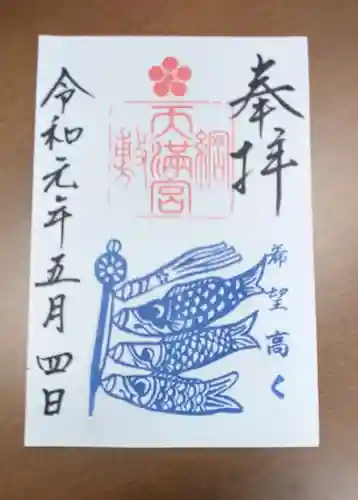 奉拝
綱敷
天満宮
希望高く
令和元年五月四日